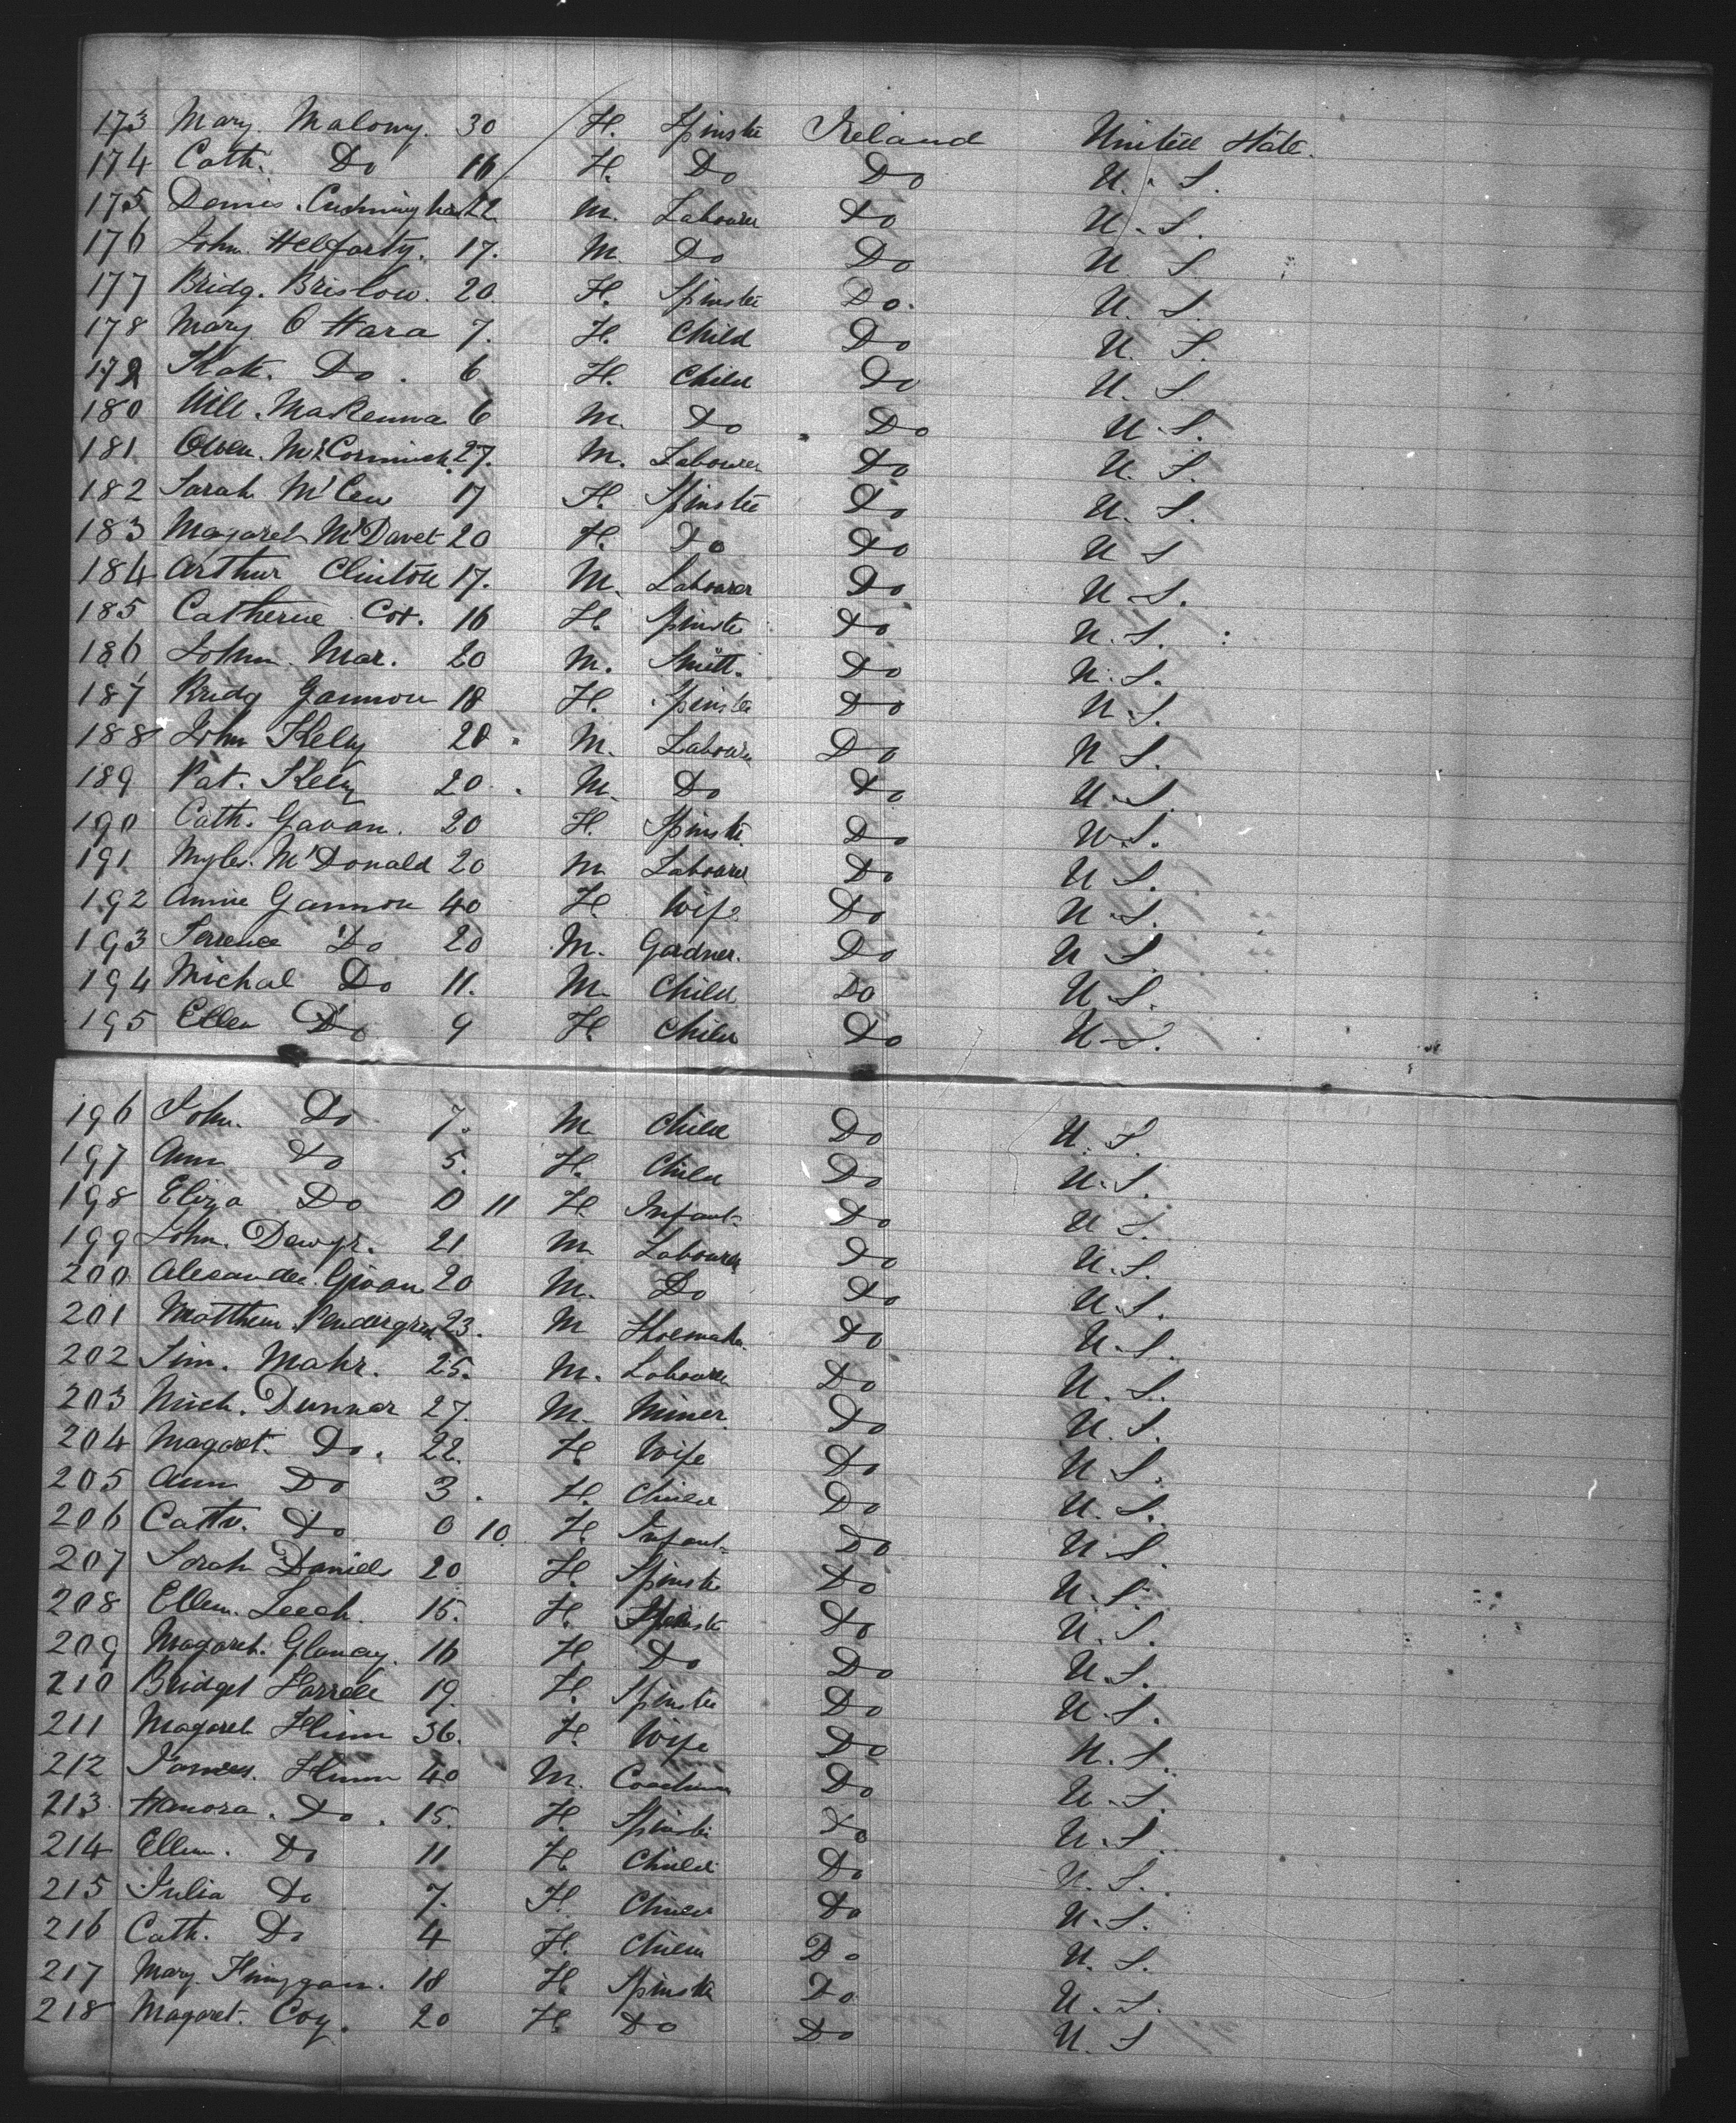 173 Mary. Malony. 30 F. Spinste Ireland United State.
174 Cath. Do 16 F. Do Do U. S.
175 Dennis. 22 M. Labourer Do U. S.
176 John 17. M. Do Do U. S.
177 Bridg. Bristow. 20. F. Spinste Do. U. S.
178 Mary O Hara 7. F. Child Do U. S.
179 Kat. Do. 6 F. Child Do U. S.
180 Will. MaKenna 6 M. Do Do U. S.
181 Owen. McCormick. 27. M. Labourer Do U. S.
182 Sarah 17 F. Spinste Do U. S.
183 Magaret McDavet 20 F. Do Do U S
184 Arthur Clinton 17. M. Labourer Do U. S.
185 Catherine Cox. 16 F. Spinste Do U. S.
186 Johnn. Mar. 20 M. Smitt. Do U. S.
187 Bridg Gannon 18 F. Spinste Do U. S.
188 John Kelly 20. M. Labourer Do U. S.
189 Pat. Kelly 20. M. Do Do U. S.
190 Cath. Gavan. 20 F. Spinste. Do U. S.
191 Myles. McDonald 20 M Labourer Do U S.
192 Annie Gannon 40 F. Wife Do U. S.
193 Terrence Do 20 M. Gardner. Do U S.
194 Michal Do 11. M. Child Do U. S.
195 Ellen Do 9 F. Child Do U. S.
196 John. Do 7. M Child Do U. S.
197 Ann Do 5. F. Child Do U. S.
198 Eliza Do 0 11 F. Infant Do U S.
199 John. 21 M Labourer Do U. S.
200 Alexander. 20 M. Do Do U. S.
201 Matthew 23. M Shoemaker. Do U. S.
202 Tim. Mahr. 25. M. Labourer Do U. S.
203 Mich. Dunner 27. M. Miner. Do U. S.
204 Magaret. Do. 22. F. Wife Do U S.
205 Ann Do 3. F. Child Do U. S.
206 Cath. Do 0 10. F. Infant Do U. S.
207 Sarah Daniels 20 F. Spinste Do U. S.
208 Ellen. Leech. 15. F. Spinste Do U. S.
209 Magaret. Glancy. 16 F. Do Do U. S.
210 Bridget Farrell 19. F. Spinste Do U. S.
211 Magaret Flinn 36. F. Wife Do U. S.
212 James. Flinn 40 M. Coachman Do U. S.
213 Hanora. Do. 15. F. Spinste Do U. S.
214 Ellen. Do 11 F. Child Do U. S.
215 Julia Do 7. F. Child Do U. S.
216 Cath. Do 4 F. Child Do U. S.
217 Mary. 18 F. Spinste Do U. S.
218 Magaret. Coy. 20 F. Do Do U. S